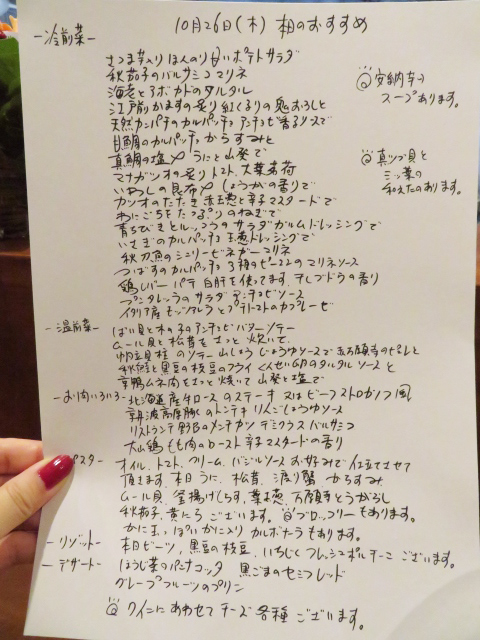 10月26日(木) 柏のおすすめ
-冷前菜-
さつま芋入り ほんのり甘いポテトサラダ
秋茄子のバルサミコマリネ
海老とアボカドのタルタル
江戸前かますの炙り 紅くるりの鬼おろしと
天然カンパチのカルパッチョ アンチョビ香るソースで
目鯛のカルパッチョ からすみと
真鯛の塩〆 うにと山葵で
マナガツオの炙り トマト、大葉、茗荷
いわしの昆布〆 しょうがの香りで
カツオのたたき 赤玉葱と辛子マスタードで
わにごちをたっぷりのねぎで
青ちびきとルッコラのサラダ ガルムドレッシングで
いさきのカルパッチョ 玉葱ドレッシングで
秋刀魚のシェリービネガーマリネ
つばすのカルパッチョ 3種のビーツのマリネソース
鶏レバーパテ 白肝を使ってます。干しブドウの香り
プンタレッラのサラダ アンチョビソース
イタリア産モッツァレラとプチトマトのカプレーゼ
安納芋の
スープあります。
真ツブ貝と
三ツ葉の
和えたのあります。
-温前菜-
ばい貝と木の子のアンチョビバターソテー
ムール貝と松茸をさっと炊いて
帆立貝柱のソテー 山しょうじょうゆソースで 万願寺のピュレと
秋鮭と黒豆の枝豆のフライ くんせい卵のタルタルソースと
京鴨ムネ肉をさっと焼いて 山葵と塩で
-お肉いろいろ-
北海道産牛ロースのステーキ 又はビーフストロガノフ風
丹波高原豚のトンテキ りんごしょうゆソース
リストランテ野郎のメンチカツ デミグラスバルサミコ
大山鶏もも肉のロースト 辛子マスタードの香り
パスター
オイル、トマト、クリーム、バジルソース お好みで仕立てさせて
頂きます。本日うに、松茸、渡り蟹 からすみ
ムール貝、釜揚げしらす、葉玉葱、万願寺とうがらし
秋茄子、黄にら ございます。ブロッコリーもあります。
かに玉っぽい かに入りカルボナーラもあります。
-リゾット-
本日ビーツ、黒豆の枝豆、いちじく フレッシュポルチーニ ございます。
-デザート-
ほうじ茶のパンナコッタ 黒ごまのセミフレッド
グレープフルーツのプリン
ワインにあわせて チーズ各種 ございます。